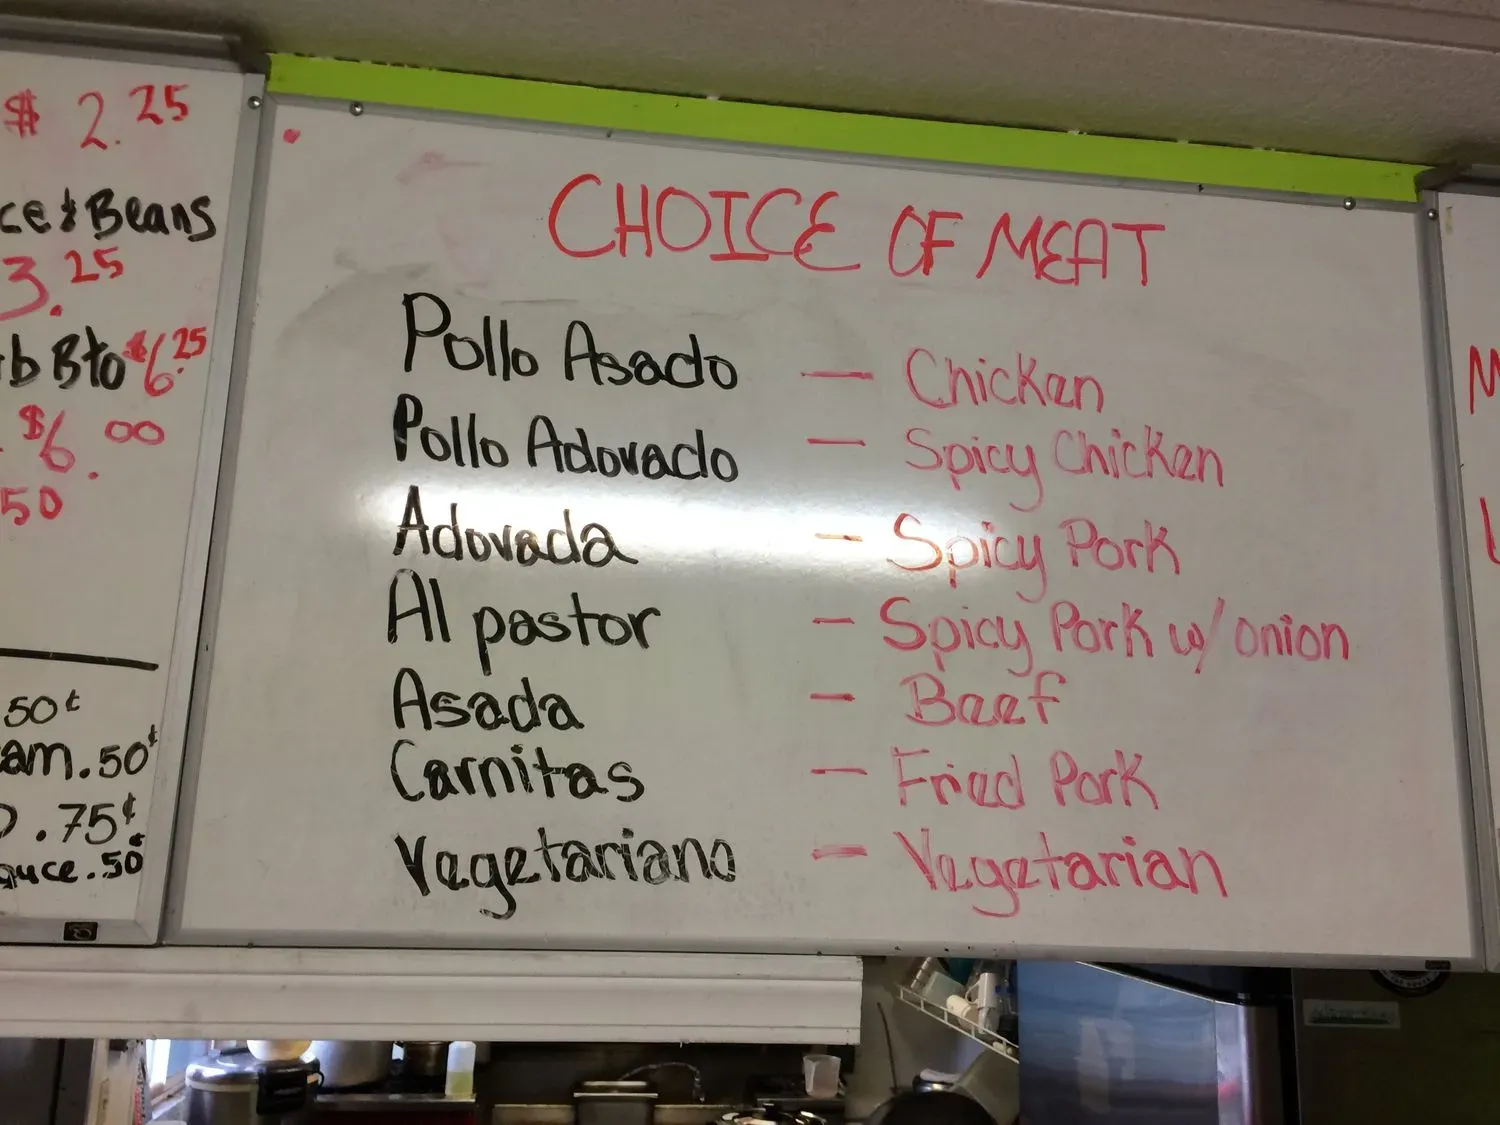 $ 2.25
Beans
3.25
Bto $6.25
$6.00
50
50¢
.50¢
.75¢
.50
CHOICE OF MEAT
Pollo Asado — Chicken
Pollo Adovado — Spicy Chicken
Adovada — Spicy Pork
Al pastor — Spicy Pork w/ onion
Asada — Beef
Carnitas — Fried Pork
Vegetariano — Vegetarian